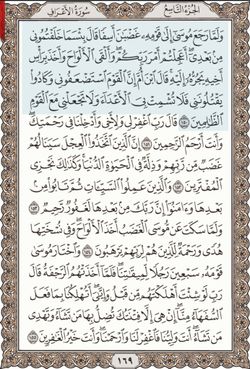 الجزء التاسع
سورة الأعراف
ولما رجع موسى إلى قومه غضبن أسفا قال بئسما خلفتموني
من بعدي أعجلتم أمر ربكم وألقى الألواح وأخذ برأس
أخيه يجره إليه قال ابن أم إن القوم استضعفوني وكادوا
يقتلونني فلا تشمت بي الأعداء ولا تجعلني مع القوم
الظلمين ١٥٠ قال رب اغفر لي ولأخي وأدخلنا في رحمتك
وأنت أرحم الرحمين ١٥١ إن الذين اتخذوا العجل سينالهم
غضب من ربهم وذلة في الحيوة الدنيا وكذلك نجزي
المفترين ١٥٢ والذين عملوا السيئات ثم تابوا من
بعدها وءامنوا إن ربك من بعدها لغفور رحيم ١٥٣
ولما سكت عن موسى الغضب أخذ الألواح وفي نسختها
هدى ورحمة للذين هم لربهم يرهبون ١٥٤ واختار موسى
قومه سبعين رجلا لميقتنا فلما أخذتهم الرجفة قال
رب لو شئت أهلكتهم من قبل وإيى أتهلكنا بما فعل
السفهاء منا إن هي إلا فتنتك تضل بها من تشاء وتهدي
من تشاء أنت ولينا فاغفر لنا وارحمنا وأنت خير الغفرين ١٥٥
١٦٩